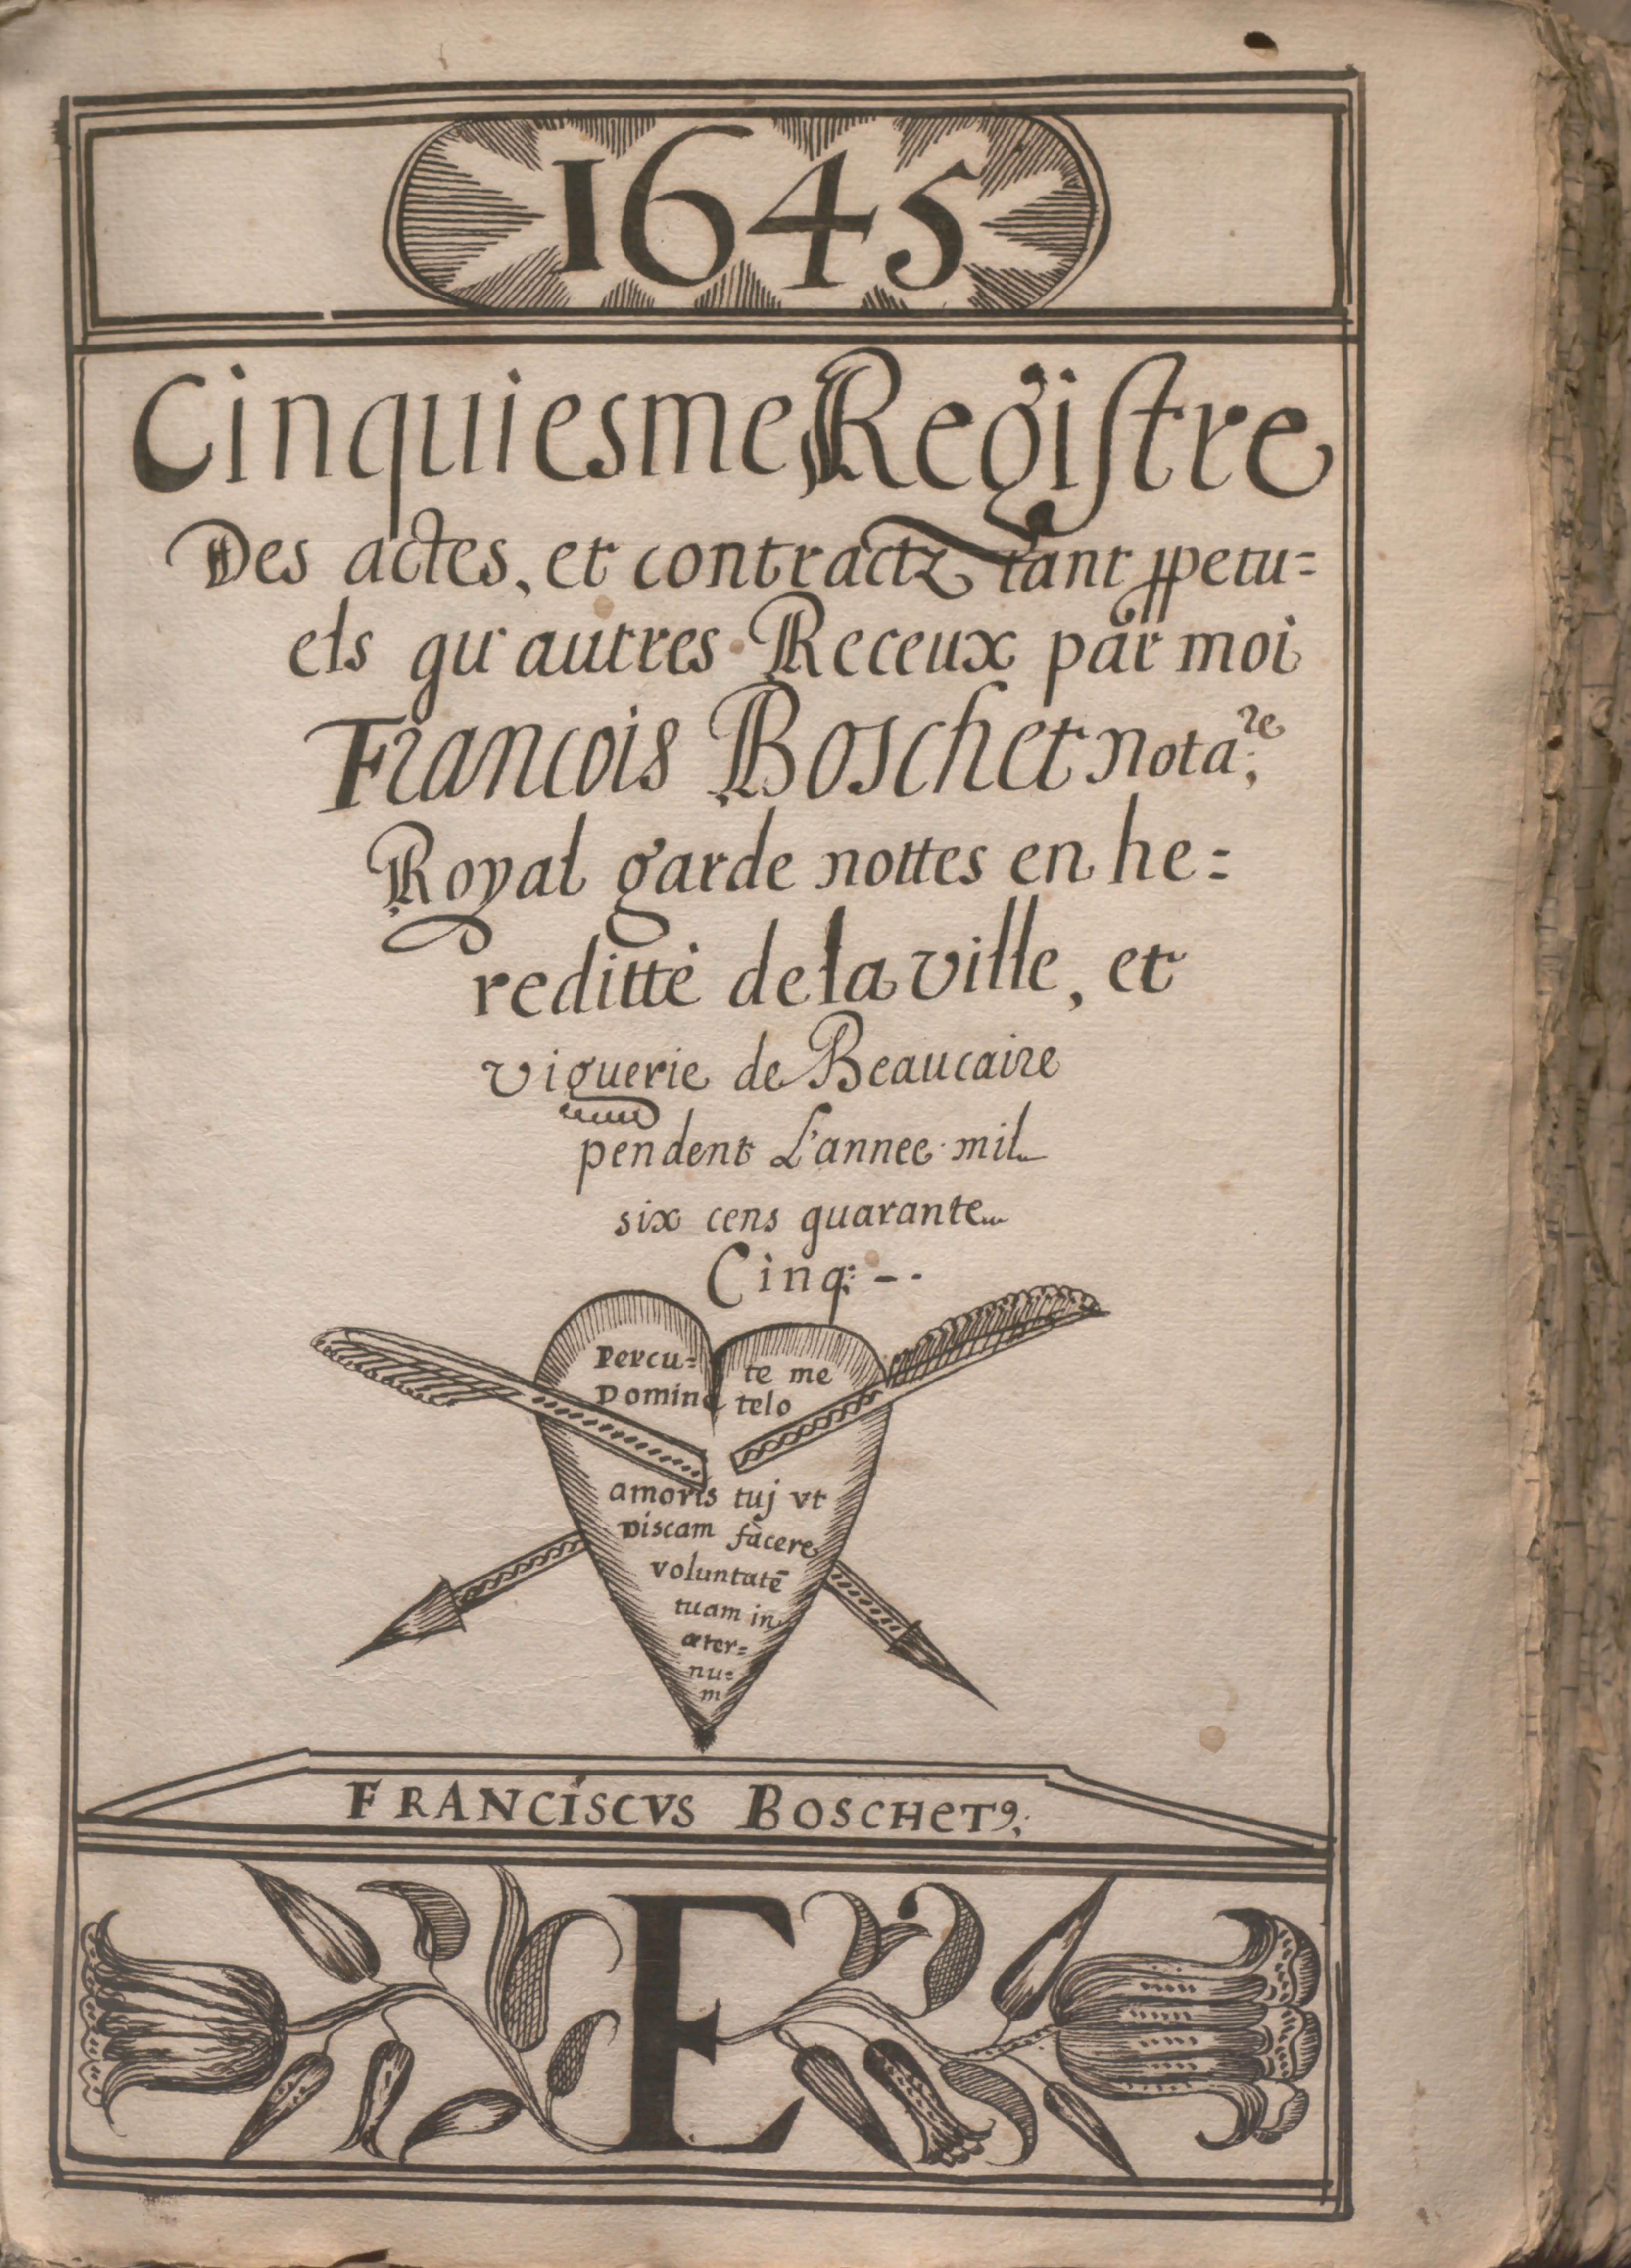 1645
Cinquiesme Regiſtre
Des actes, et contractz tant ꝑpetu=
els qu'autres Receux par moi
Francois Boschet Nota.re
Royal garde nottes en he=
reditté de la ville, et
viguerie de Beaucaire
pendent L'annee mil
six cens quarante
Cinq: -.
Percu= te me
Domine telo
amoris tuj vt
Discam facere
voluntatē
tuam in
æter=
nu=
m
FRANCISCVS BOSCHETꝰ.
E